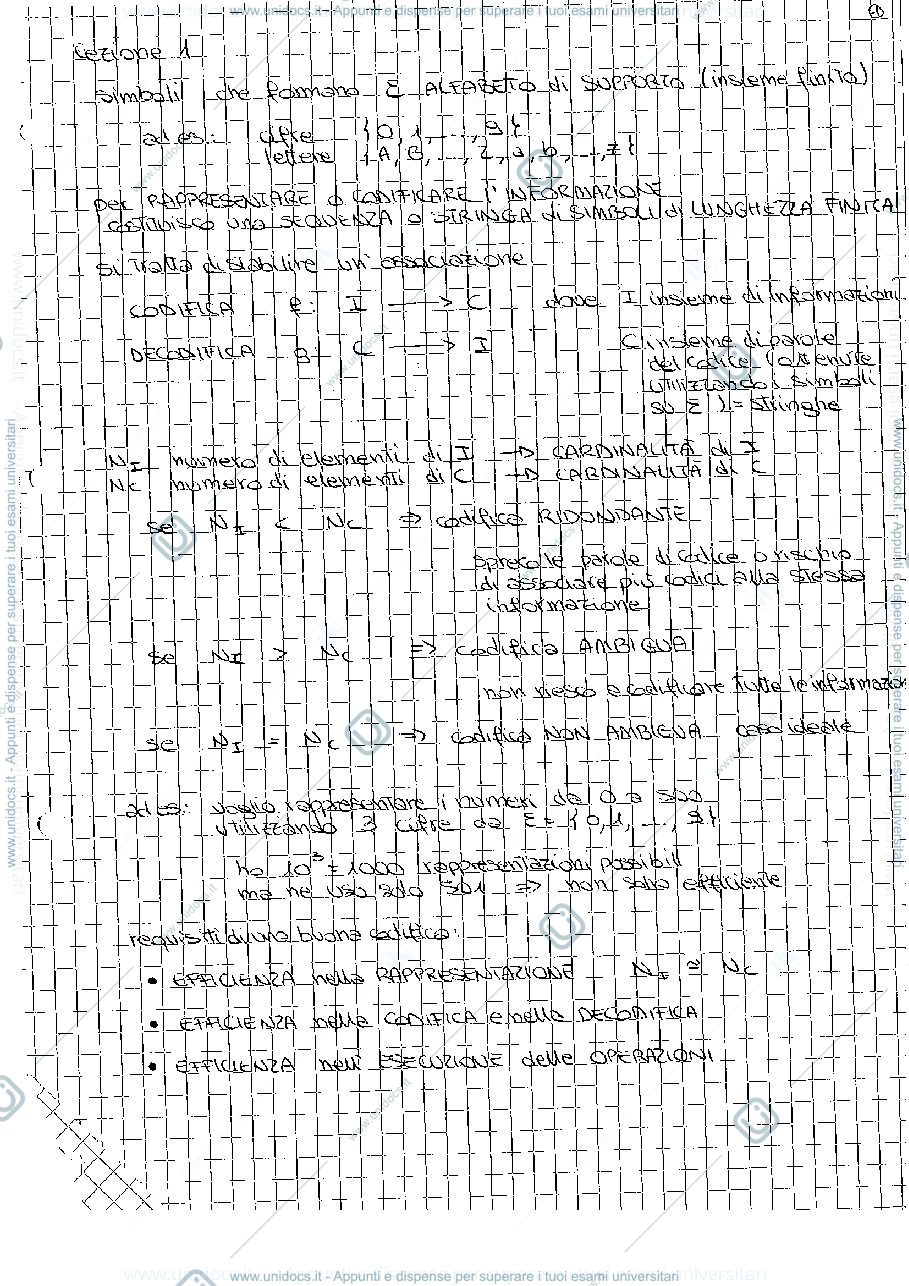 www.unidocs.it - Appunti e dispense per superare i tuoi esami universitari
1
Lezione 1
simboli che formano Σ ALFABETO di SUPPORTO (insieme finito)
ad es: cifre {0, 1, ..., 9}
lettere {A, B, ..., Z, a, b, ..., z}
per RAPPRESENTARE o CODIFICARE l'INFORMAZIONE
costruisco una SEQUENZA o STRINGA di SIMBOLI di LUNGHEZZA FINITA
si tratta di stabilire un'associazione
CODIFICA f: I → C dove I insieme di informazioni
DECODIFICA g C → I C insieme di parole
del codice (ottenute
utilizzando i simboli
su Σ) = stringhe
N_I numero di elementi di I → CARDINALITÀ di I
N_C numero di elementi di C → CARDINALITÀ di C
se N_I < N_C ⇒ codifica RIDONDANTE
spreco le parole di codice o rischio
di associare più codici alla stessa
informazione
se N_I > N_C ⇒ codifica AMBIGUA
non riesco a codificare tutte le informazioni
se N_I = N_C ⇒ codifica NON AMBIGUA caso ideale
ad es: voglio rappresentare i numeri da 0 a 500
utilizzando 3 cifre da Σ = {0, 1, ..., 9}
ho 10³ = 1000 rappresentazioni possibili
ma ne uso solo 501 ⇒ non sono efficiente
requisiti di una buona codifica:
• EFFICIENZA nella RAPPRESENTAZIONE N_I ≅ N_C
• EFFICIENZA nella CODIFICA e nella DECODIFICA
• EFFICIENZA nell'ESECUZIONE delle OPERAZIONI
www.unidocs.it - Appunti e dispense per superare i tuoi esami universitari